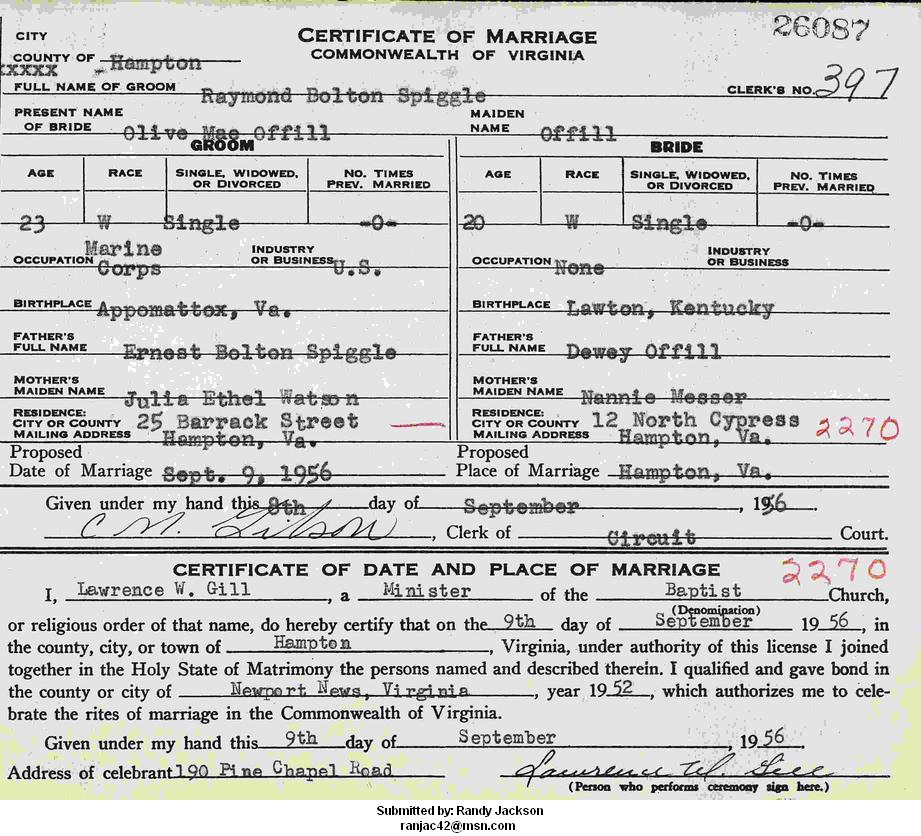 26087
CITY
CERTIFICATE OF MARRIAGE
COUNTY OF Hampton
COMMONWEALTH OF VIRGINIA
XXXXX
FULL NAME OF GROOM Raymond Bolton Spiggle CLERK'S NO. 397
PRESENT NAME OF BRIDE Olive Mae Offill MAIDEN NAME Offill
GROOM BRIDE
AGE RACE SINGLE, WIDOWED, OR DIVORCED NO. TIMES PREV. MARRIED AGE RACE SINGLE, WIDOWED, OR DIVORCED NO. TIMES PREV. MARRIED
23 W Single -0- 20 W Single -0-
OCCUPATION Marine Corps INDUSTRY OR BUSINESS U.S. OCCUPATION None INDUSTRY OR BUSINESS
BIRTHPLACE Appomattox, Va. BIRTHPLACE Lawton, Kentucky
FATHER'S FULL NAME Ernest Bolton Spiggle FATHER'S FULL NAME Dewey Offill
MOTHER'S MAIDEN NAME Julia Ethel Watson MOTHER'S MAIDEN NAME Nannie Messer
RESIDENCE: RESIDENCE:
CITY OR COUNTY 25 Barrack Street CITY OR COUNTY 12 North Cypress 2270
MAILING ADDRESS Hampton, Va. MAILING ADDRESS Hampton, Va.
Proposed Proposed
Date of Marriage Sept. 9, 1956 Place of Marriage Hampton, Va.
Given under my hand this 8th day of September, 1956
C M Gibson, Clerk of Circuit Court.
CERTIFICATE OF DATE AND PLACE OF MARRIAGE 2270
I, Lawrence W. Gill, a Minister of the Baptist Church,
(Denomination)
or religious order of that name, do hereby certify that on the 9th day of September 1956, in
the county, city, or town of Hampton, Virginia, under authority of this license I joined
together in the Holy State of Matrimony the persons named and described therein. I qualified and gave bond in
the county or city of Newport News, Virginia, year 1952, which authorizes me to cele-
brate the rites of marriage in the Commonwealth of Virginia.
Given under my hand this 9th day of September, 1956.
Address of celebrant 190 Pine Chapel Road Lawrence W. Gill
(Person who performs ceremony sign here.)
Submitted by: Randy Jackson
ranjac42@msn.com